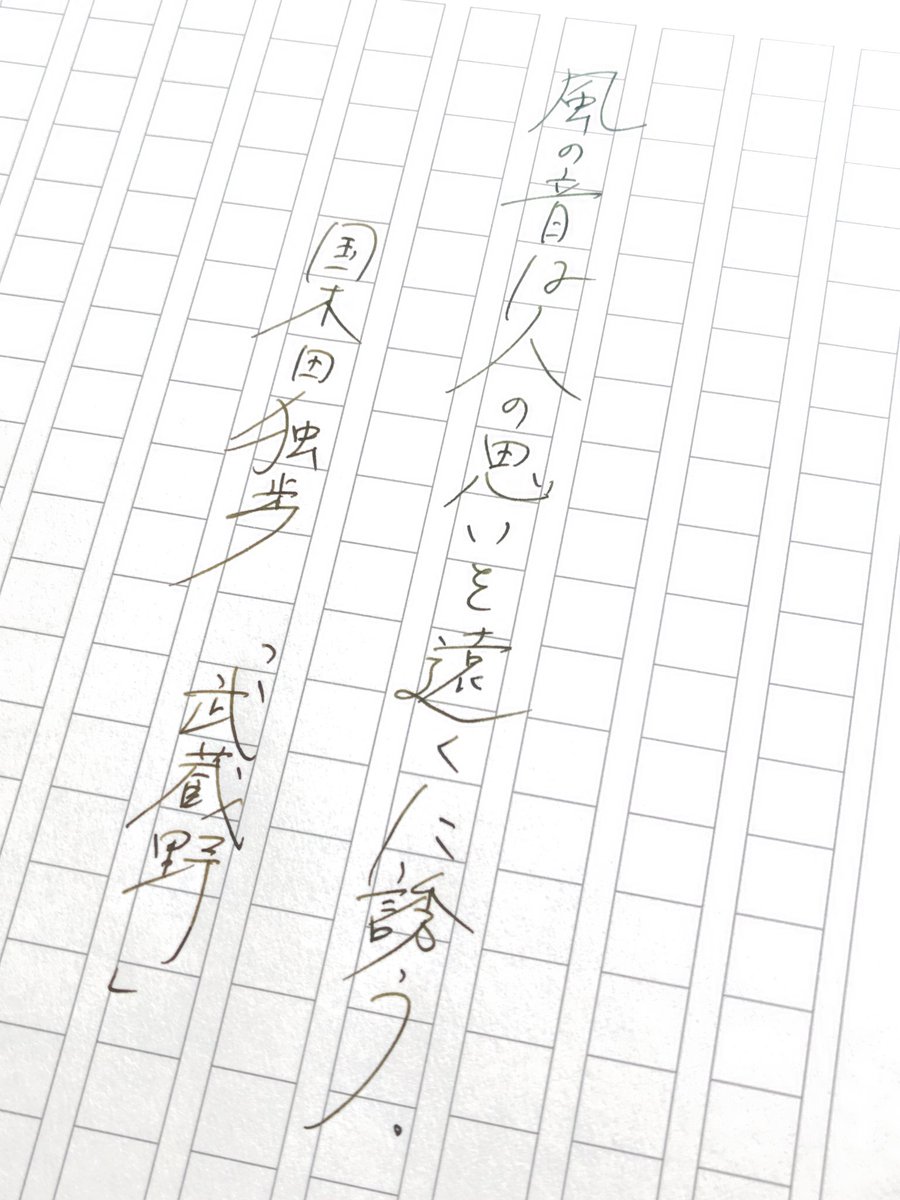 風の音は人の思いを遠くに誘う.
国木田独歩 「武蔵野」